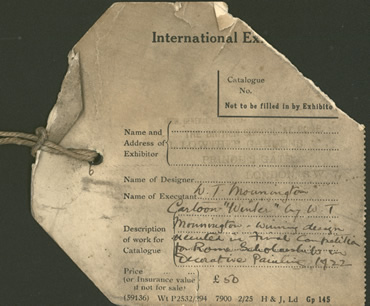 International Ex
Catalogue
No.
Not to be filled in by Exhibito
Name and
Address of
Exhibitor
Name of Designer
Name of Executant W. T. Monnington
Cartoon "Winter" by W T
Description Monnington - winning design
of work for executed in Final Competition
Catalogue for Rome Scholarship in
Decorative Painting 1922
Price
(or Insurance value £50
if not for sale)
(59136) Wt P2532/194 7900 2/25 H & J, Ld Gp 145